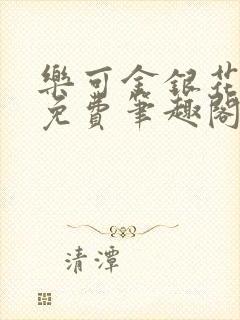 樂可金銀花
免費筆趣閣
清潭